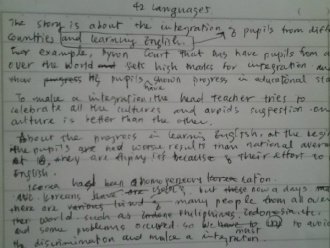 42 languages
The story is about the integration of pupils from diff
Countries and learning English.
For example, Court that has pupils from a
over the world sets high marks for integration an
their pupils have shown progress in educational sta
To make a integration, the head teacher tries to
celebrate all the cultures and avoids sugestion one
culture is better than the other.
About the progress in learning English, at the begin
the pupils are had worse results than national avera
at they are because of their effort to
English.
Korea had been homogeneous cation.
All Koreans, but now a days
there are many people from all over
the world. such as Philippines, Indonesia, etc.
and some problems occured so we must
the discrimination and make a integration.